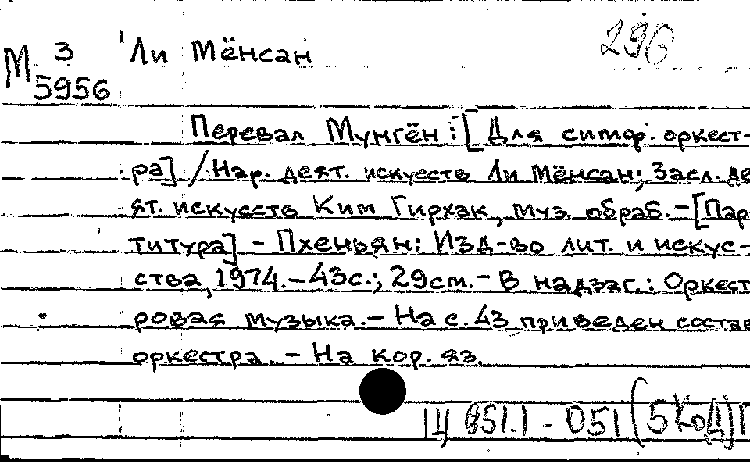 М 3
5956
Ли Мёнсан
296
Перевал Мунгён: [Для симф. оркест-
ра] / Нар. деят. искусств Ли Мёнсан; Засл. де
ят. искусств Ким Гирхак, муз. обраб. – [Пар
титура] – Пхеньян: Изд-во лит. и искус-
ства, 1974. – 43с.; 29см. – В надзаг.: Оркест
ровая музыка. – На с. 43 приведен состав
оркестра. – На кор. яз.
Щ 851.1 - 051 (5Код)